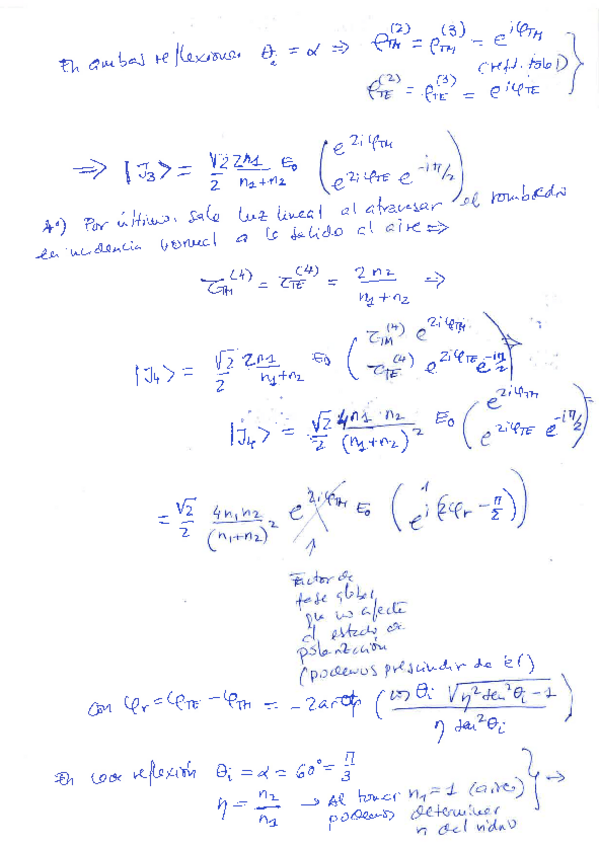 En ambas reflexiones θi = α ⇒ ρTM^(2) = ρTM^(3) = e^{iφTM}
(refl. total)
ρTE^(2) = ρTE^(3) = e^{iφTE}
⇒ |J3> = √2/2 2n1/(n2+n2) E0 (e^{2iφTM} / e^{2iφTE} e^{-iπ/2})
4º) Por último, sale luz lineal al atravesar el romboedro
en incidencia normal a la salida al aire ⇒
τTM^(4) = τTE^(4) = 2n2/(n1+n2) ⇒
|J4> = √2/2 2n1/(n1+n2) E0 (τTM^(4) e^{2iφTM} / τTE^(4) e^{2iφTE} e^{-iπ/2})
|J4> = √2/2 4n1 n2/(n1+n2)^2 E0 (e^{2iφTM} / e^{2iφTE} e^{-iπ/2}) =
= √2/2 4n1n2/(n1+n2)^2 e^{2iφTM} E0 (1 / e^{i(2φr - π/2)})
↑
Factor de
fase global
que no afecta
al estado de
polarización
(podemos prescindir de él)
con φr = φTE - φTM = -2arctg (cos θi √(η² sen²θi - 1) / η sen²θi)
En cada reflexión θi = α = 60° = π/3
η = n2/n1 → Al tomar n1 = 1 (aire) } →
podemos determinar
n del vidrio